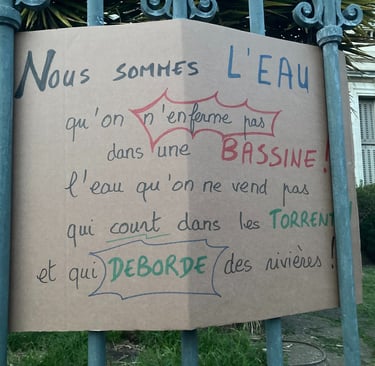 Nous sommes L'EAU
qu'on n'enferme pas
dans une BASSINE !
l'eau qu'on ne vend pas
qui court dans les TORRENT
et qui DEBORDE des rivières !